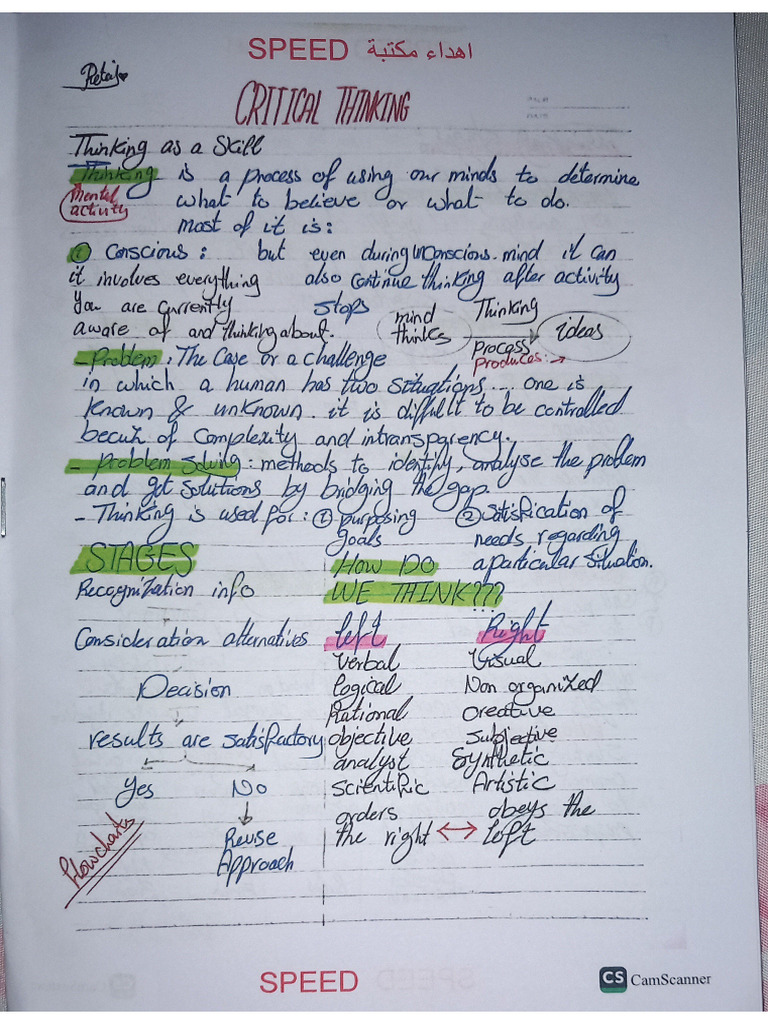 SPEED اهداء مكتبة
Retaj
CRITICAL THINKING
Thinking as a Skill
Thinking is a process of using our minds to determine
mental activity
what to believe or what to do.
most of it is:
① Conscious: but even during unconscious mind it can
it involves everything also continue thinking after activity
you are currently stops
aware of and thinking about.
mind thinks
Thinking
Process
Produces: →
ideas
- Problem: The Case or a challenge
in which a human has two situations.... one is
known & unknown. it is difficlt to be controlled
becuz of Complexity and intransparency.
- Problem Solving: methods to identify, analyse the problem
and get solutions by bridging the gap.
- Thinking is used for: ① purposing ② Satisfication of
goals needs regarding
a particular situation.
STAGES
Recognization info
Consideration alternatives
Decision
results are satisfactory
Yes No
Reuse
Approach
Flowcharts
HOW DO
WE THINK???
left Right
Verbal Visual
logical Non organized
Rational Creative
objective Subjective
analyst Synthetic
Scientific Artistic
orders obeys the
the right ↔ left
SPEED
CS CamScanner